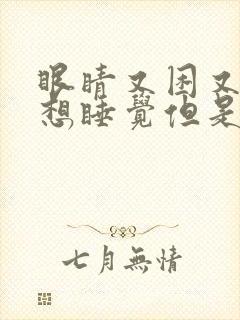 眼睛又困又
想睡覺但是
七月無情